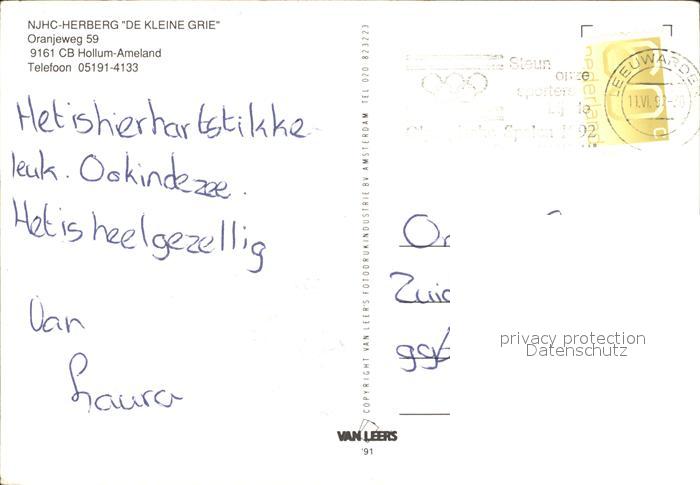 NJHC-HERBERG "DE KLEINE GRIE"
Oranjeweg 59
9161 CB Hollum-Ameland
Telefoon 05191-4133
Het is hier hartstikke
leuk. Ook in de zee.
Het is heel gezellig
Van
Laura
COPYRIGHT VAN LEER'S FOTODRUKINDUSTRIE BV AMSTERDAM TEL 020-823223
VAN LEER'S
'91
Steun
onze
sporters
bij de
Olympische Spelen 1992
nederland
60 c
LEEUWARDEN
11.VI.92
Or
Zuid
privacy protection
Datenschutz